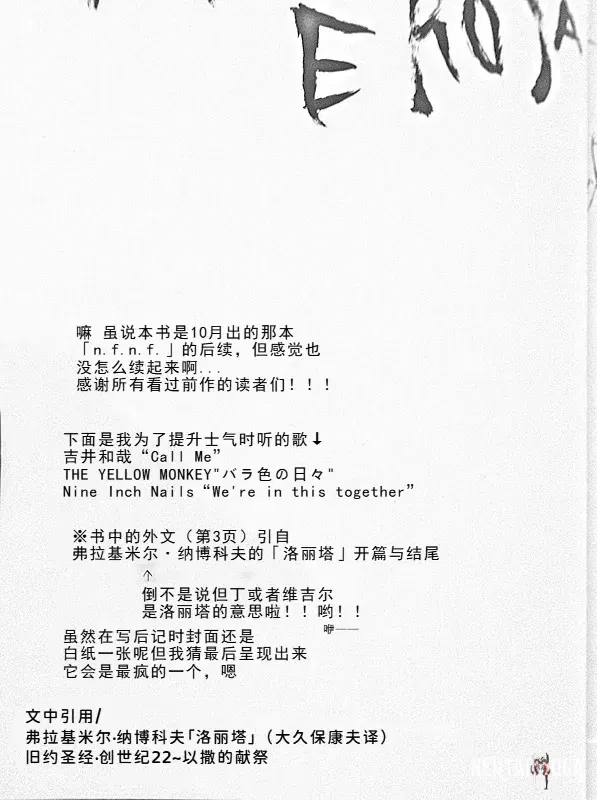 EROJA
嘛 虽说本书是10月出的那本
「n.f.n.f.」的后续，但感觉也
没怎么续起来啊...
感谢所有看过前作的读者们！！！
下面是我为了提升士气时听的歌↓
吉井和哉“Call Me”
THE YELLOW MONKEY"バラ色の日々"
Nine Inch Nails“We're in this together”
※书中的外文（第3页）引自
弗拉基米尔·纳博科夫的「洛丽塔」开篇与结尾
↑
倒不是说但丁或者维吉尔
是洛丽塔的意思啦！！哟！！
咿——
虽然在写后记时封面还是
白纸一张呢但我猜最后呈现出来
它会是最疯的一个，嗯
文中引用/
弗拉基米尔·纳博科夫「洛丽塔」（大久保康夫译）
旧约圣经·创世纪22~以撒的献祭